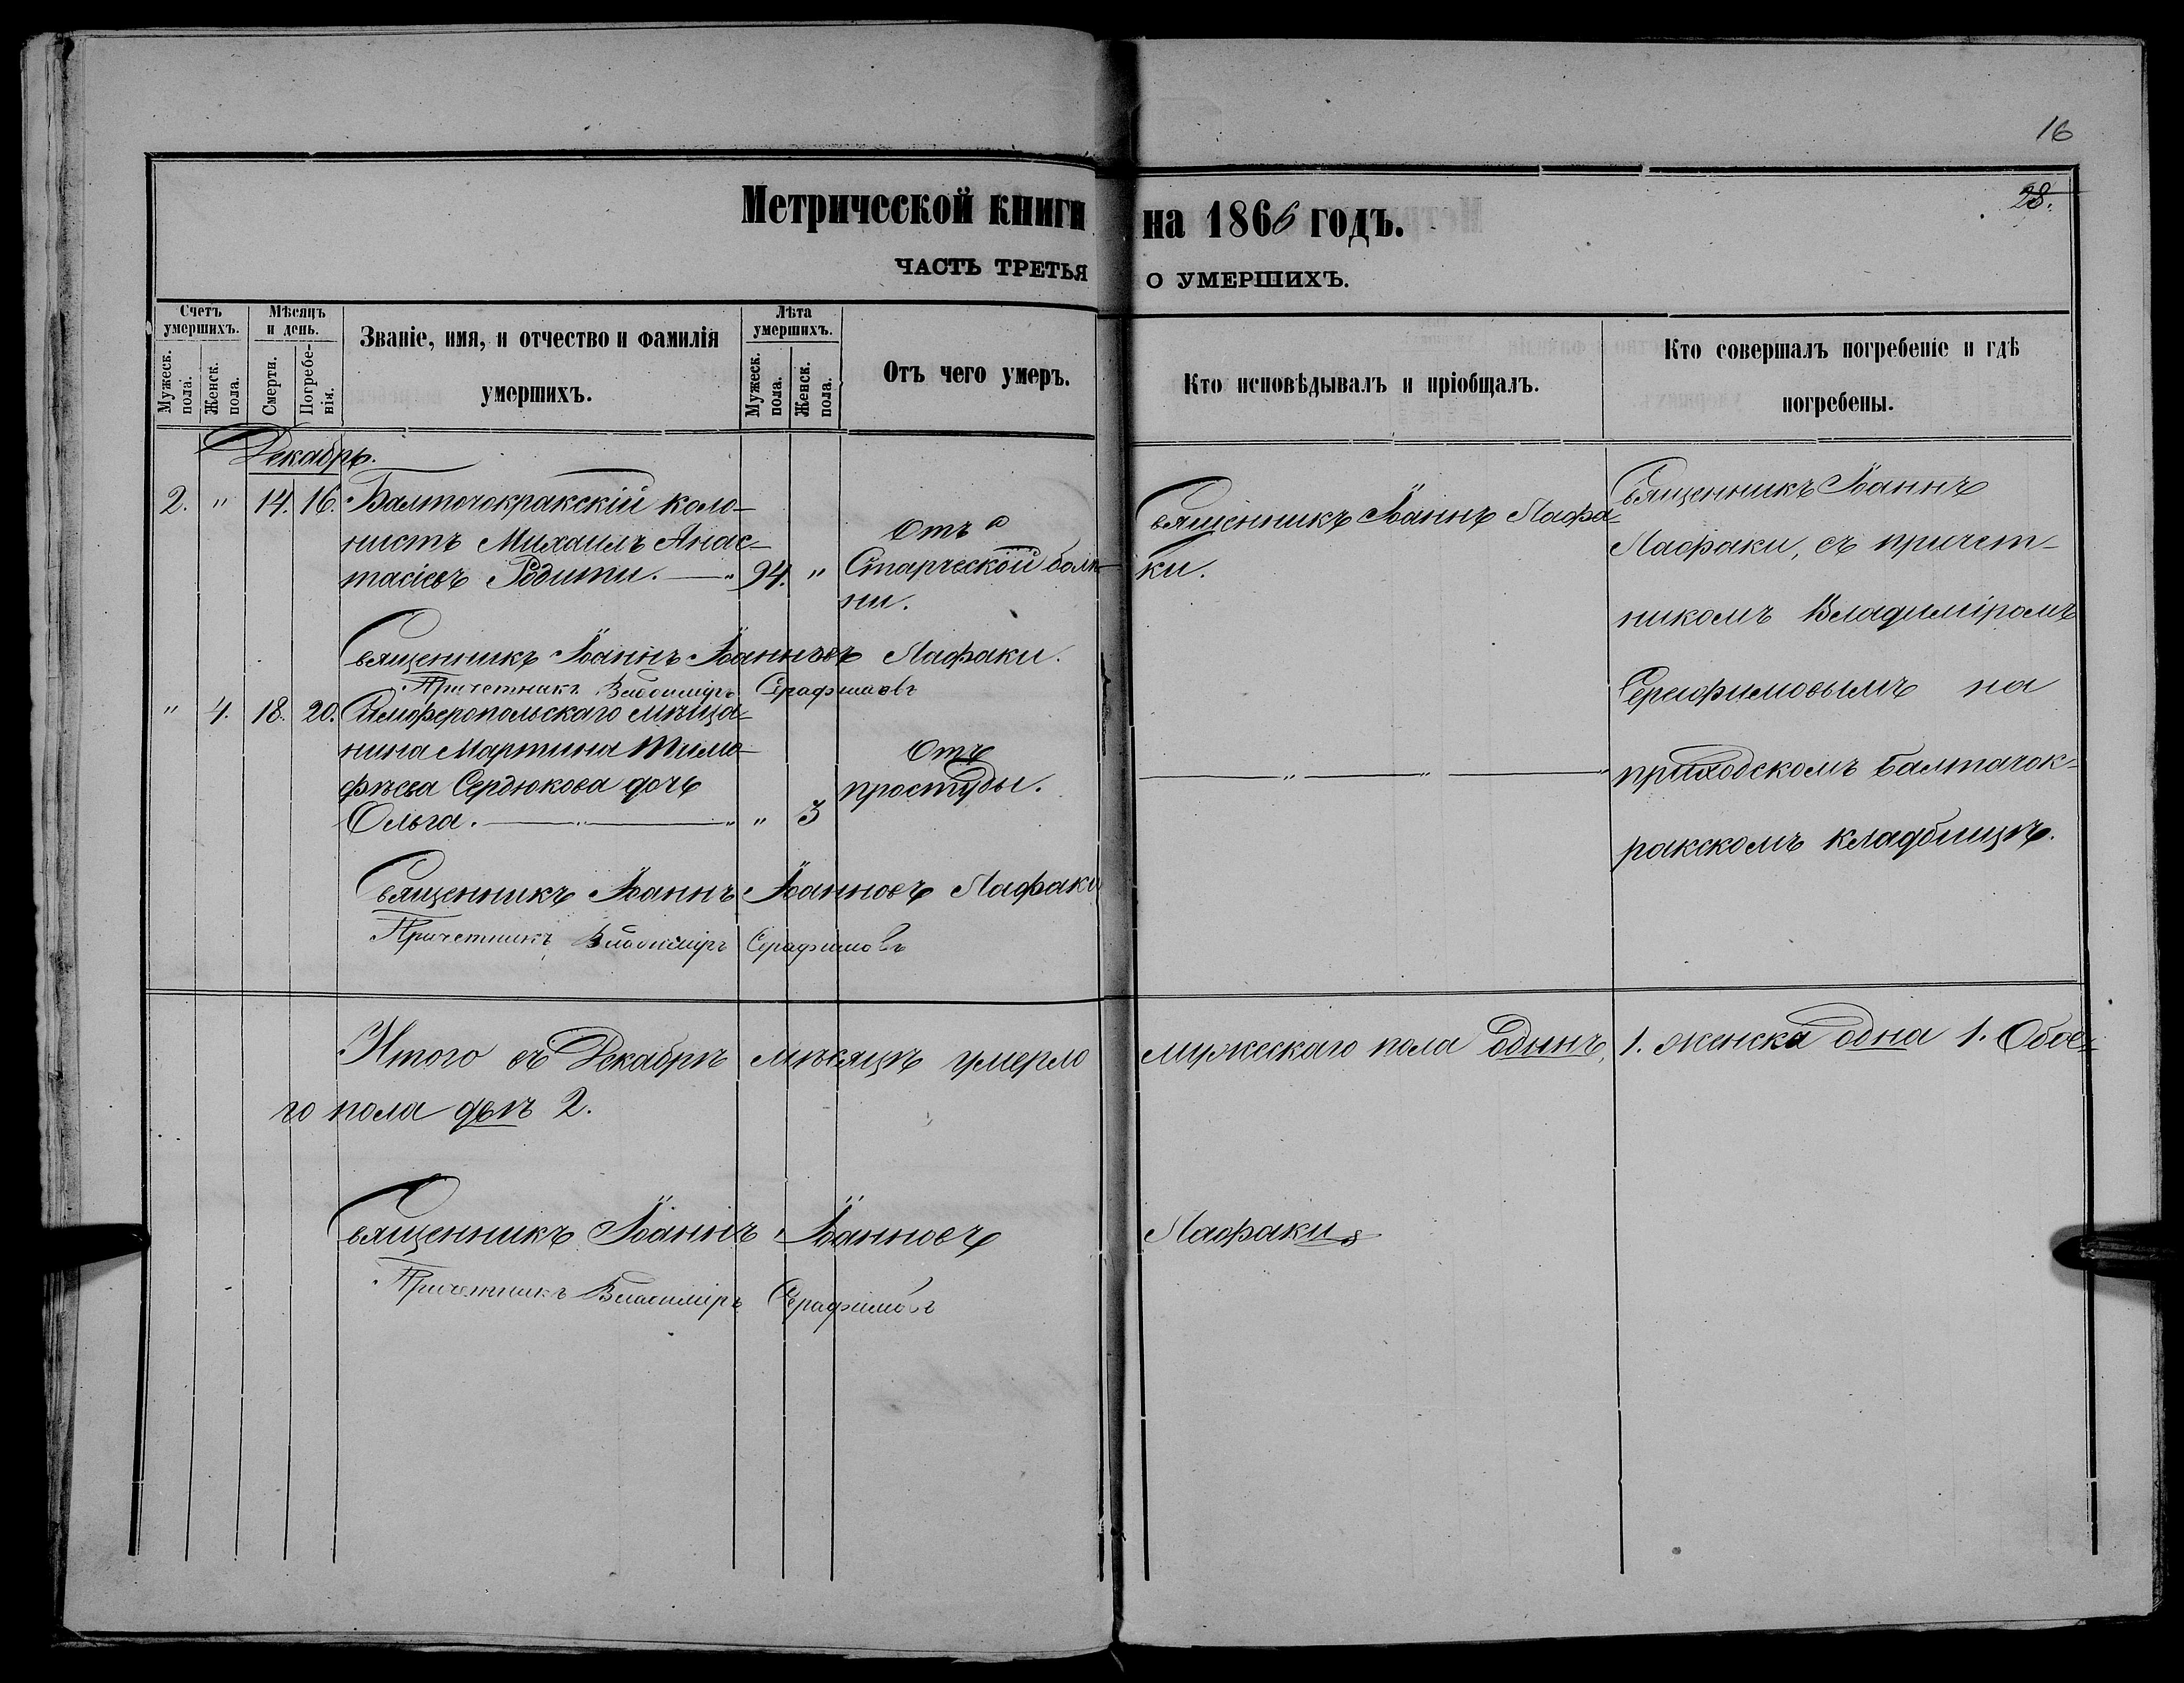 16
28.
Метрической книги на 1866 годъ.
ЧАСТЬ ТРЕТЬЯ О УМЕРШИХЪ.
Счетъ умершихъ.
Мужеск. пола.
Женск. пола.
Мѣсяцъ и день.
Смерти.
Погребенія.
Званіе, имя, и отчество и фамилія
умершихъ.
Лѣта умершихъ.
Мужеск. пола.
Женск. пола.
Отъ чего умеръ.
Кто исповѣдывалъ и пріобщалъ.
Кто совершалъ погребеніе и гдѣ
погребены.
Декабрь.
2. " 14. 16. Балточокракскій коло-
нистъ Михаилъ Анас-
тасіевъ Родити. — " 94. "
Отъ
Старческой болѣ-
ни.
Священникъ Іоаннъ Лафа-
ки.
Священникъ Іоаннъ
Лафаки, съ причет-
никомъ Владиміромъ
Серафимовымъ на
приходскомъ Балтачок-
ракскомъ кладбищѣ.
Священникъ Іоаннъ Іоанновъ Лафаки.
Причетникъ Владиміръ Серафимовъ
" 4. 18. 20. Симферопольскаго мѣща-
нина Мартина Тимо-
фѣева Сердюкова дочь
Ольга. — " — " " 3
Отъ
простуды.
— " — " — "
Священникъ Іоаннъ Іоанновъ Лафаки
Причетникъ Владиміръ Серафимовъ
Итого въ Декабрѣ мѣсяцѣ умерло мужескаго пола одинъ, 1. женска одна 1. Обое-
го пола двѣ 2.
Священникъ Іоаннъ Іоанновъ Лафаки
Причетникъ Владиміръ Серафимовъ